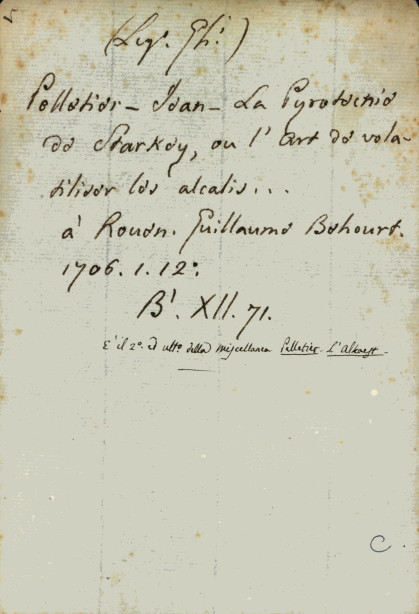 (Leg. Gh.)
Pelletier - Jean - La Pyrotechnie
de Starkey, ou l'art de vola-
tiliser les alcalis...
à Rouen. Guillaume Behourt.
1706. 1. 12°.
B¹. XII. 71.
E' il 2°. ed ult° della miscellanea Pelletier - L'Alkaest -
C.